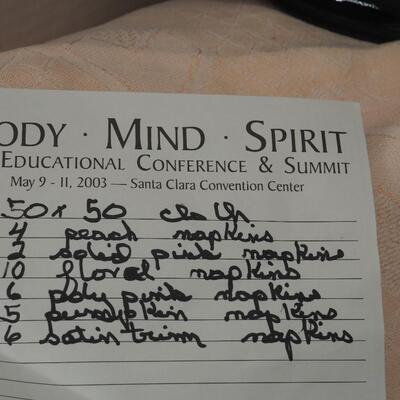 ODY · MIND · SPIRIT
EDUCATIONAL CONFERENCE & SUMMIT
May 9 - 11, 2003 — Santa Clara Convention Center
50 x 50 cloth
4 peach napkins
2 solid pink napkins
10 floral napkins
6 poly pink napkins
5 pumpkin napkins
6 satin trim napkins